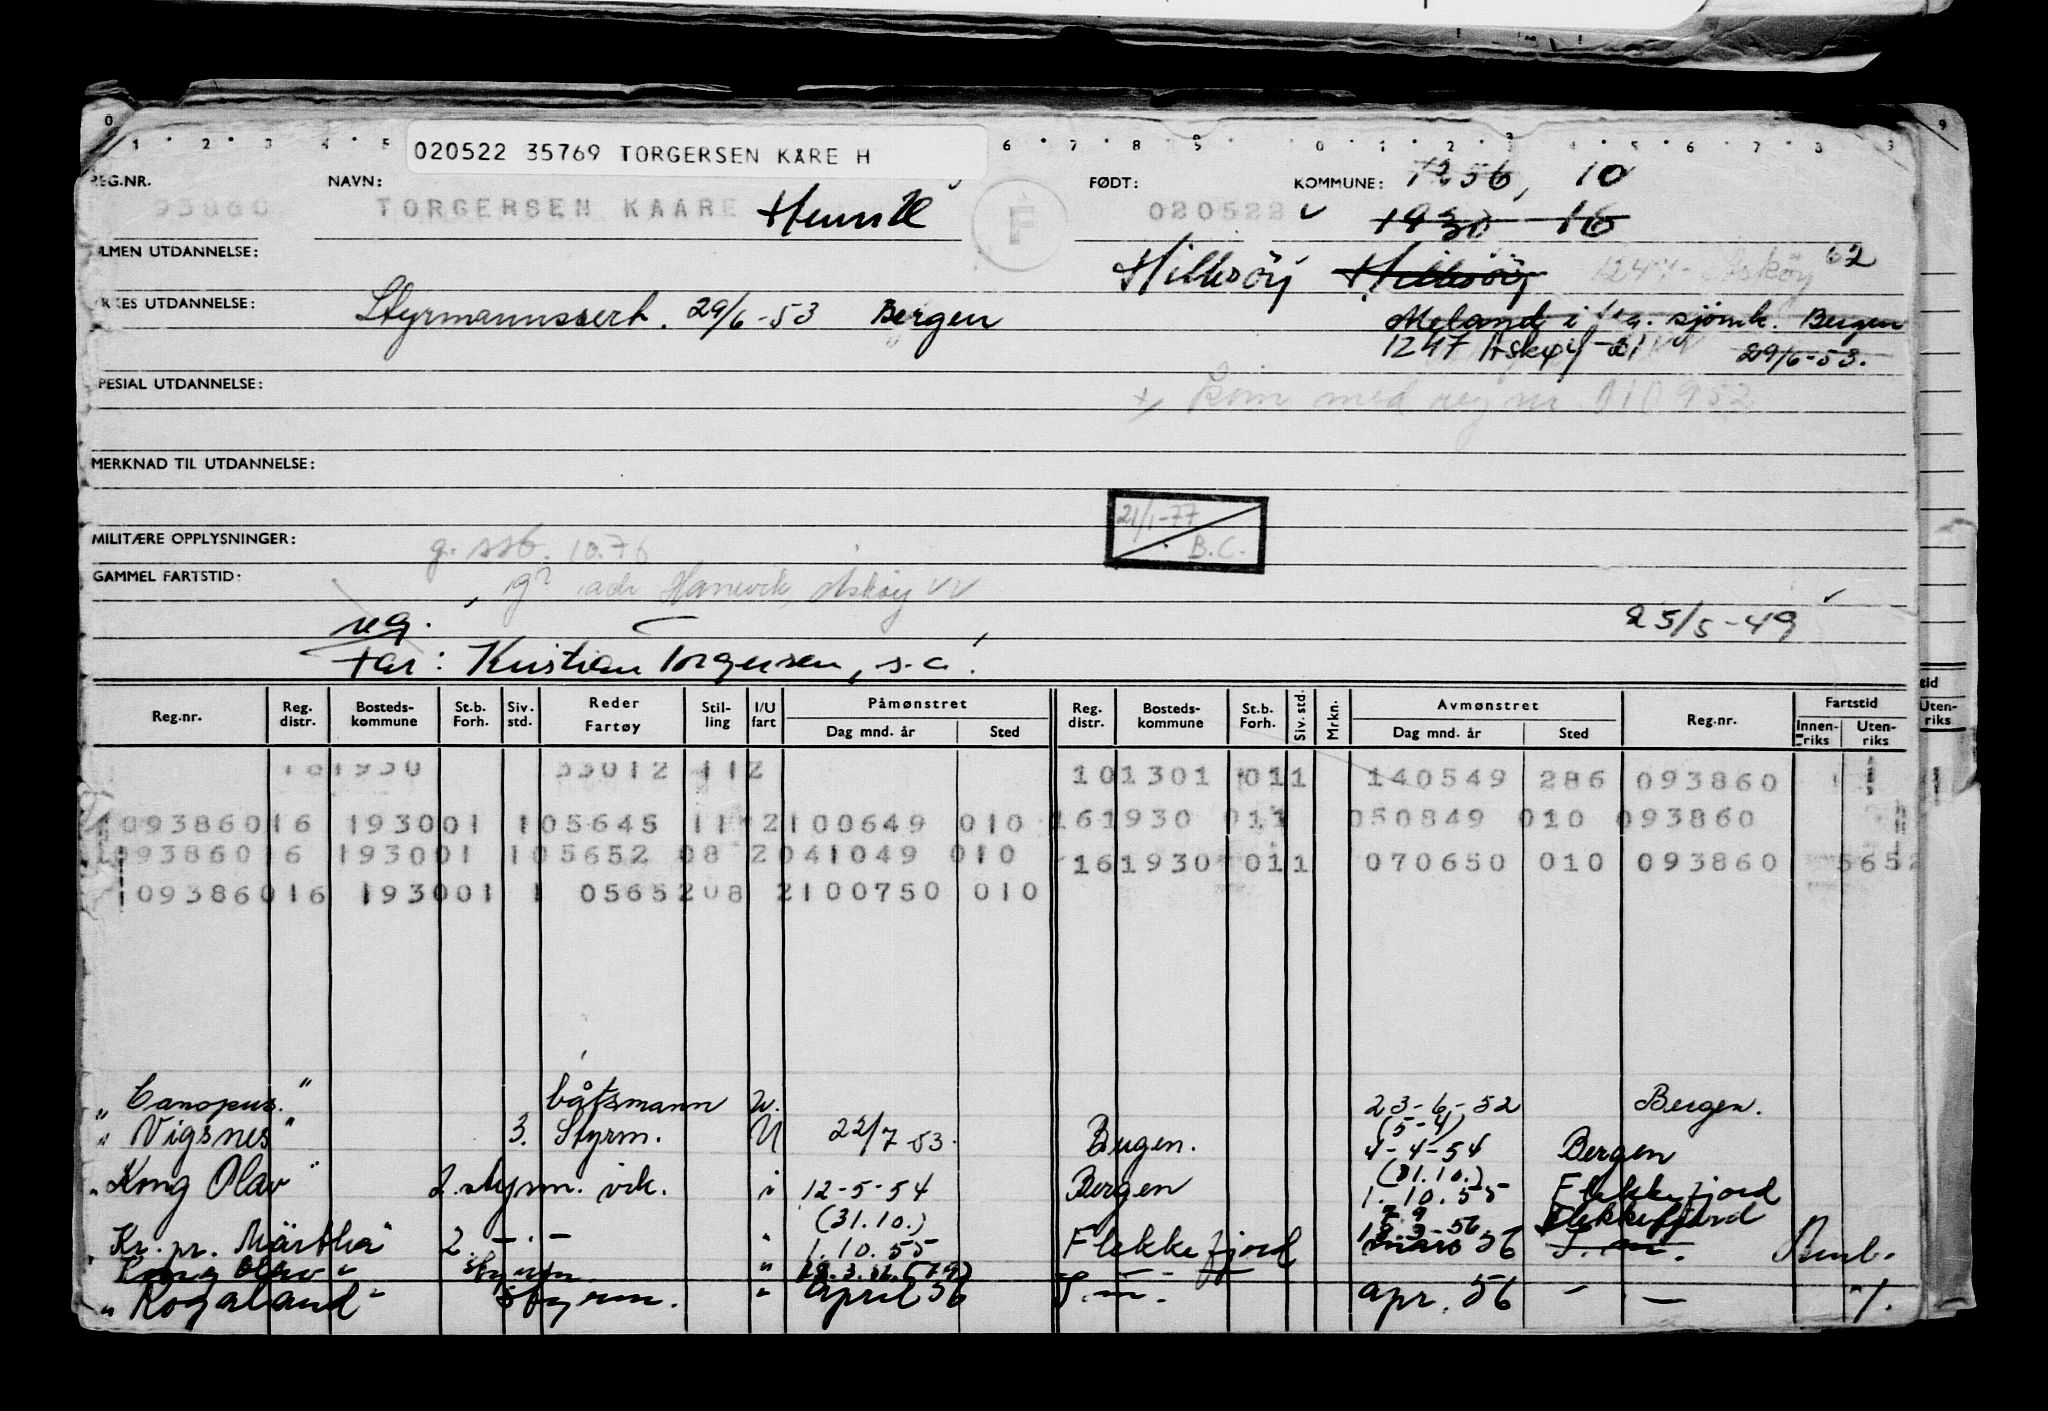 020522 35769 TORGERSEN KÅRE H
REG.NR. NAVN: FØDT: KOMMUNE: 1256, 10
93860 TORGERSEN KAARE Henrik F 020522 1930 16
ALMEN UTDANNELSE: Hillesöy Hillesöy 1247 - Asköy 62
YRKES UTDANNELSE: Styrmannssert. 29/6-53 Bergen Meland i sjömk. Bergen
1247 Asköy 29/6-53.
SPESIAL UTDANNELSE: x kom med reg nr 010952
MERKNAD TIL UTDANNELSE:
21/1-77
MILITÆRE OPPLYSNINGER: g. ssb. 10.76 B.C.
GAMMEL FARTSTID: adr Hanevik, Askøy
reg. 25/5-49
Far: Kristian Torgersen, s.a.
Reg.nr. Reg. distr. Bosteds-kommune St.b. Forh. Siv. std. Reder Fartøy Stil-ling I/U fart Påmønstret Dag mnd. år Sted Reg. distr. Bosteds-kommune St.b. Forh. Siv. std. Mrkn. Avmønstret Dag mnd. år Sted Reg.nr. Fartstid Innen-riks Uten-riks
161930 33012 112 101301 011 140549 286 093860
09386016 193001 105645 11 2100649 010 161930 011 050849 010 093860
093860 6 193001 105652 08 2041049 010 161930 011 070650 010 093860 5652
09386016 193001 1 0565208 2100750 010
"Canopus" båtsmann u. 23-6-52 Bergen.
"Vigsnes" 3. Styrm. U 22/7 53. Bergen. (5-4) 4-4-54 Bergen
"Kong Olav" 2. styrm. vik. i 12-5-54 Bergen (31.10.) 1.10.55 Flekkefjord
"Kr. pr. Märtha" 2. - " - " (31.10.) 1.10.55 Flekkefjord mars 56 Flekkefjord
"Kong Olav" Styrm. "
"Rogaland" Styrm. " april 56 apr. 56 - - "/.